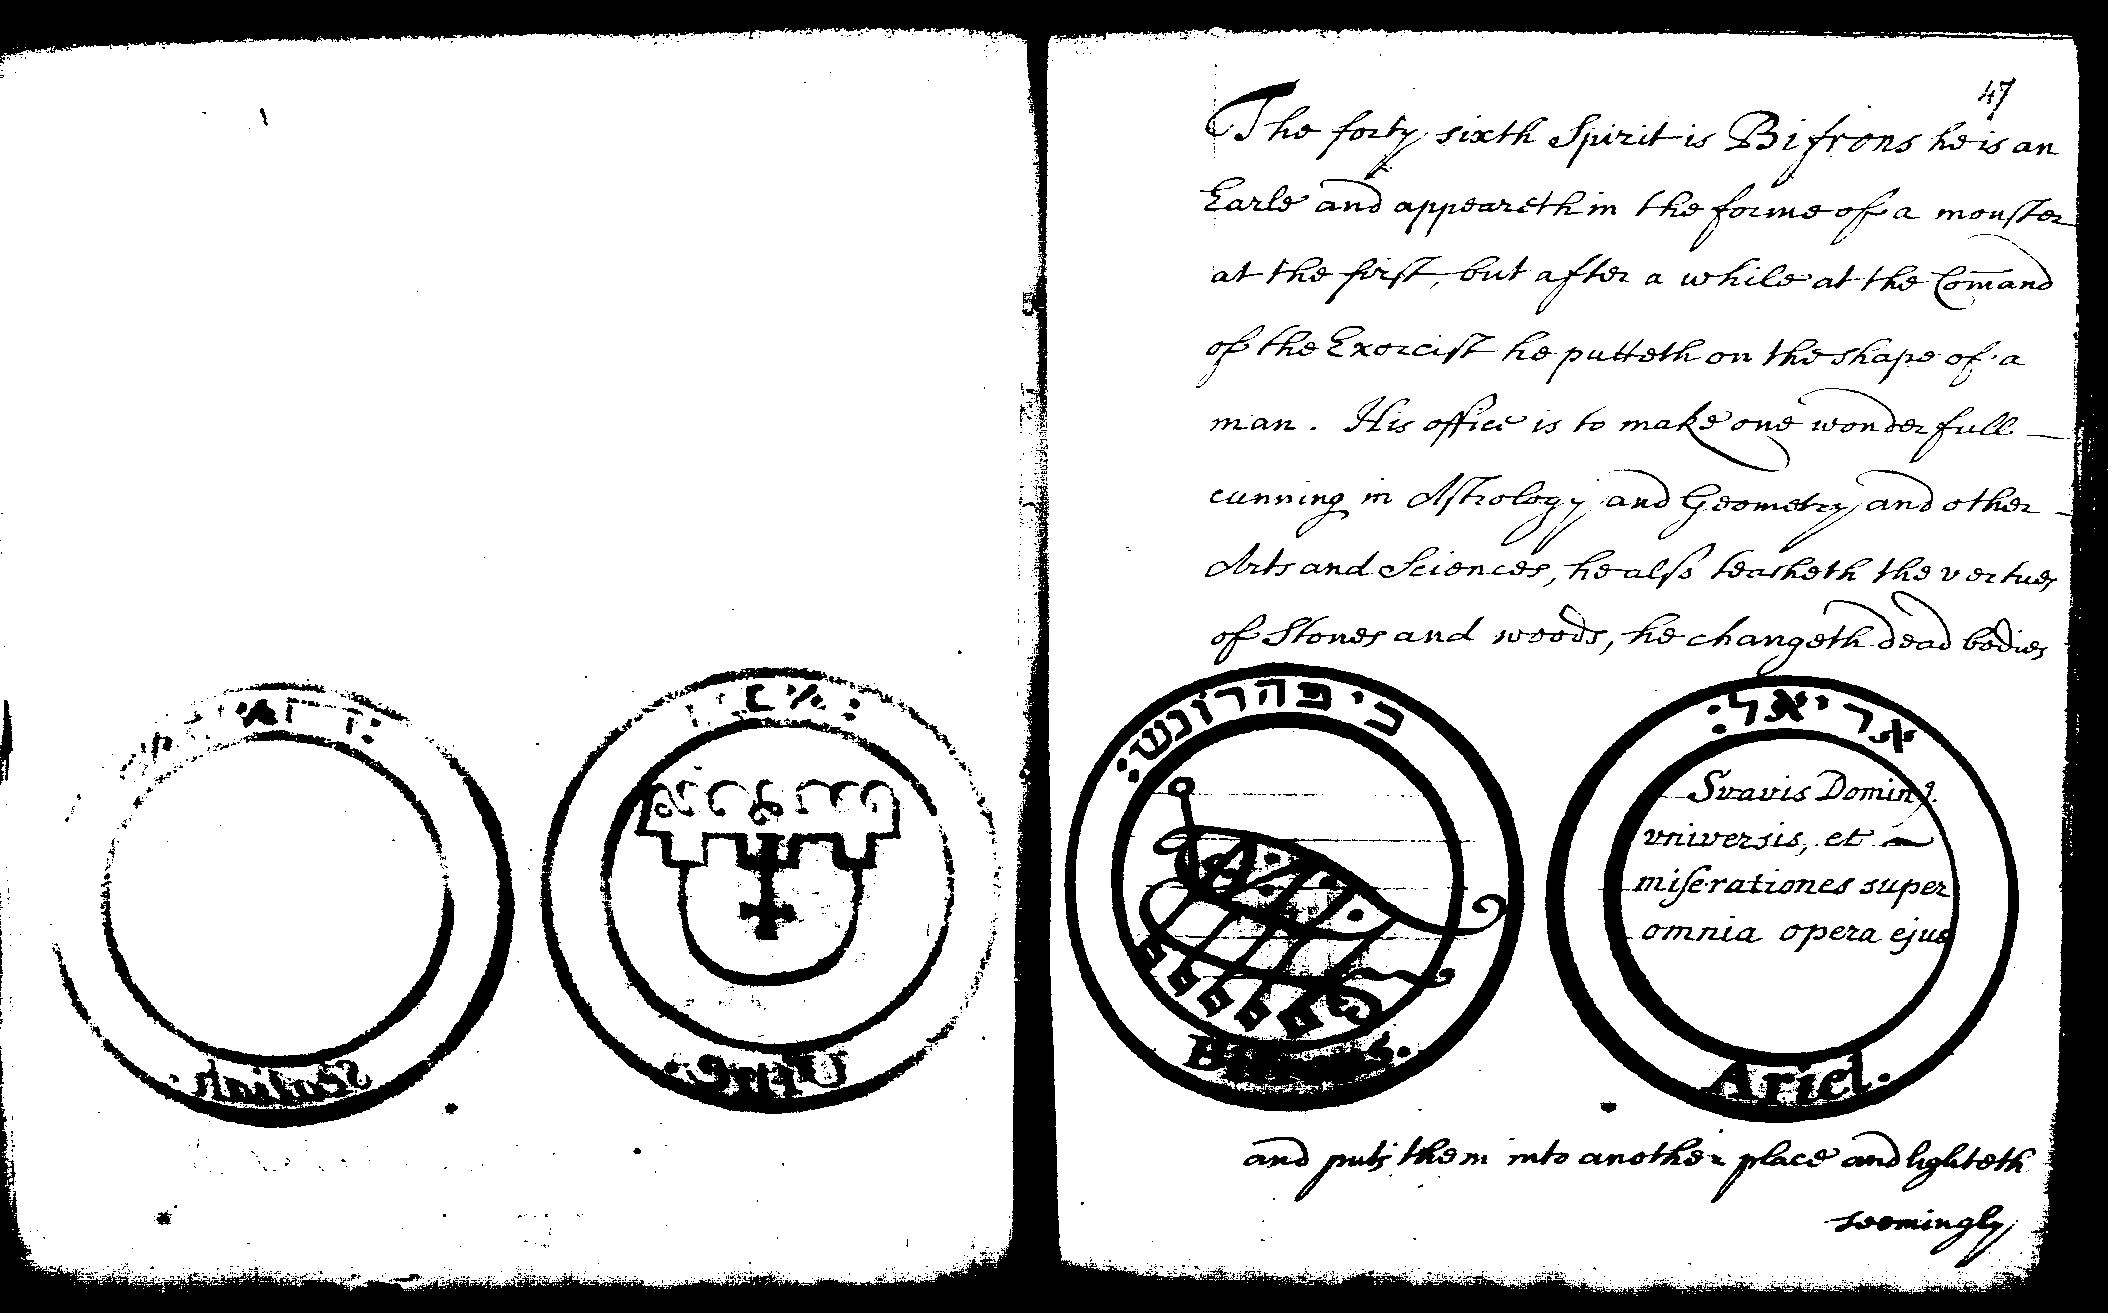 47
The forty sixth Spirit is Bifrons he is an
Earle and appeareth in the forme of a monster
at the first, but after a while at the Comand
of the Exorcist he putteth on the shape of a
man. His office is to make one wonderfull
cunning in Astrology and Geometry and other
Arts and Sciences, he also teacheth the vertues
of Stones and woods, he changeth dead bodies
כי פהרונש:
אריאל:
Suavis Dominꝰ
vniversis, et
miserationes super
omnia opera ejus
Bifrons.
Ariel.
and puts them into another place and lighteth
seemingly